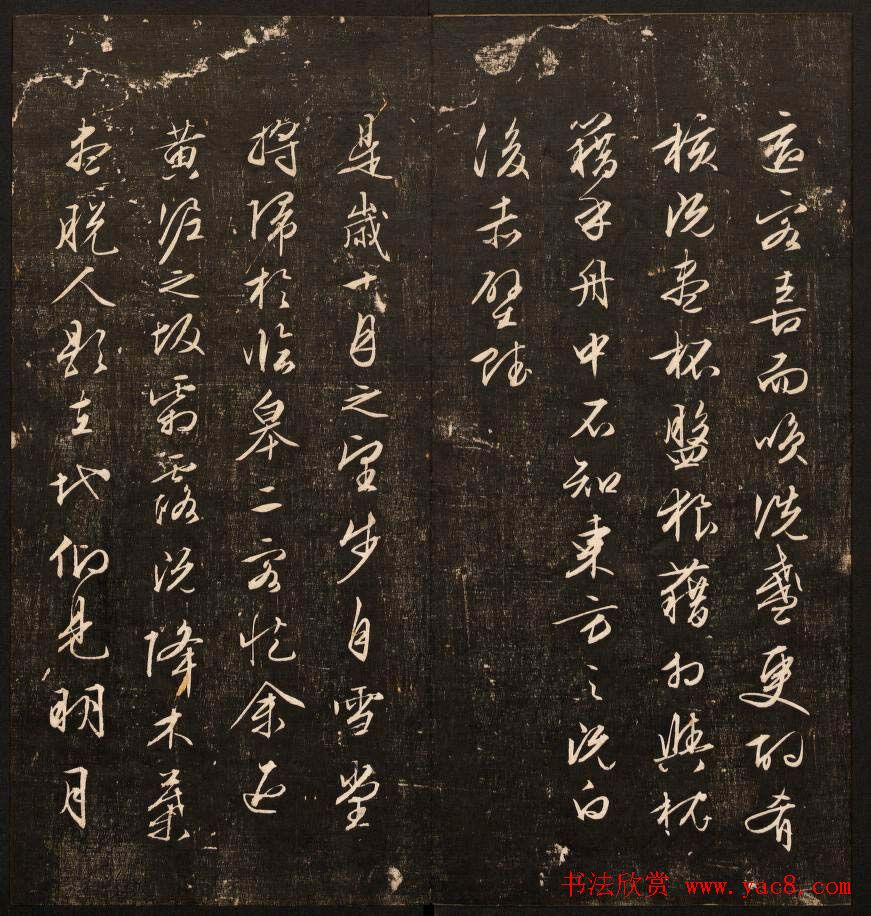 適客喜而唉洗盞更酌肴
核既盡杯盤狼藉相與枕
藉乎舟中不知東方之既白
後赤壁賦
是歲十月之望步自雪堂
將歸於臨皋二客從余過
黃泥之坂霜露既降木葉
盡脫人影在地仰見明月
书法欣赏 www.yac8.com